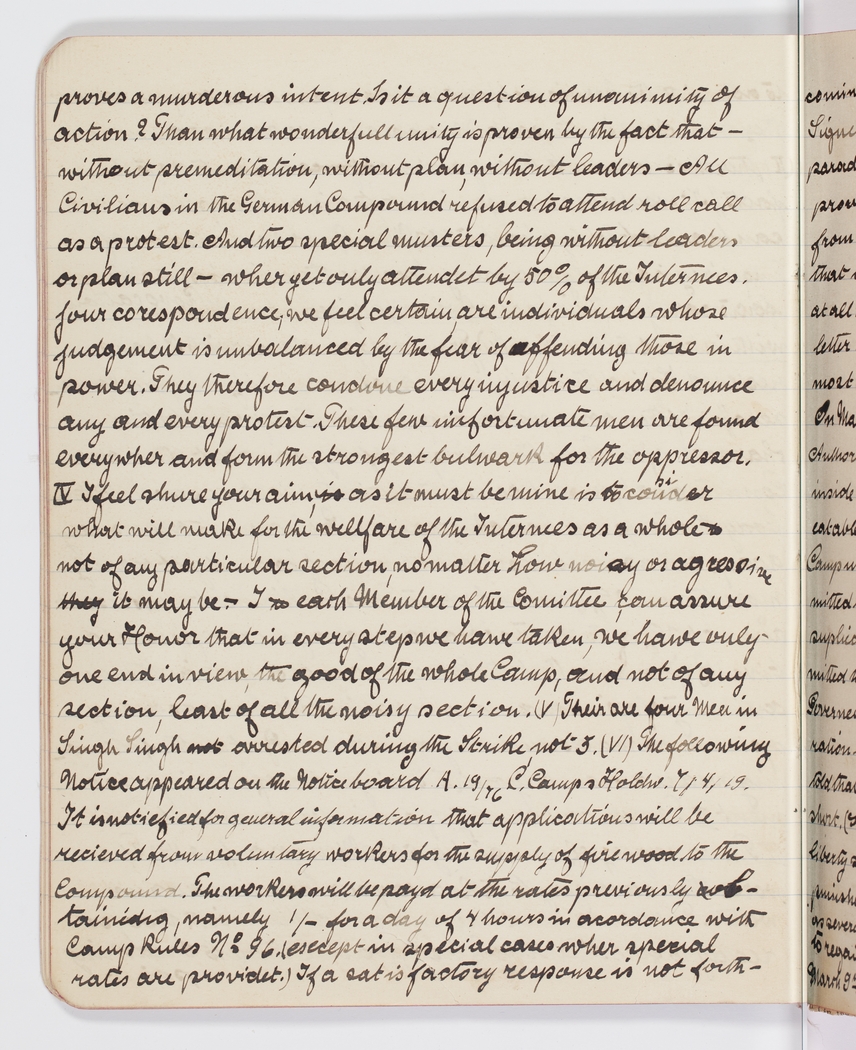 proves a murderous intent. Is it a question of unanimity of
action? Than what wonderfull unity is proven by the fact that –
without premeditation, without plan, without leaders – All
Civilians in the German Compound refused to attend roll call
as a protest. And two special musters, being without leaders
or plan still – wher yet only attendet by 50% of the Internees.
Your corespondence, we feel certain, are individuals whose
judgement is unbalanced by the fear of offending those in
power. They therefore condone every injustice and denounce
any and every protest. These few infortunate men are found
everywher and form the strongest bulwark for the oppressor.
IV I feel shure your aim, is as it must be mine is to consider
what will make for the wellfare of the Internees as a whole
not of any particular section, no matter how noisy or agressive
they it may be – I to each Member of the Comittee, can assure
your Honor that in every step we have taken, we have only
one end in view, the good of the whole Camp, and not of any
section, least of all the noisy section. (V) Their are four Men in
Singh Singh not arrested during the Strike not 5. (VI) The following
Notice appeared on the Notice board A. 19/76 C. Camp Holdw. 7/4/19.
It is notiefied for general information that applications will be
recieved from voluntary workers for the supply of fire wood to the
Compound. The workers will be payd at the rates previously ob-
tainidig, namely 1/- for a day of 4 hours in acordance with
Camp Rules No 96. (except in special cases wher special
rates are providet.) If a satisfactory response is not forth-